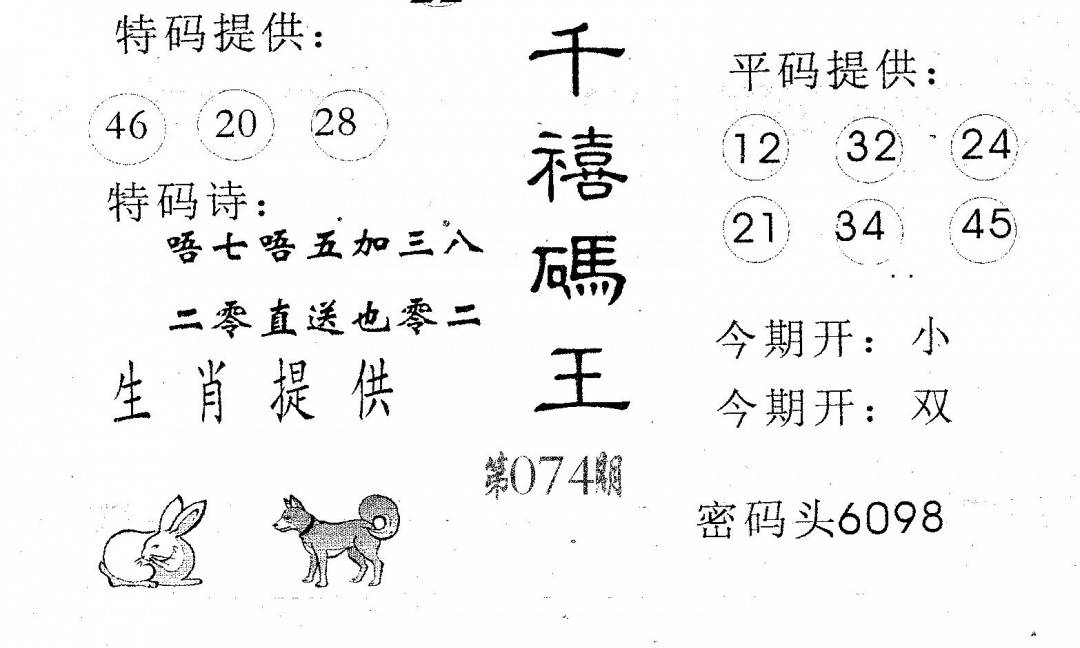 特码提供：
46 20 28
特码诗：
唔七唔五加三八
二零直送也零二
生肖提供
千禧碼王
第074期
平码提供：
12 32 24
21 34 45
今期开：小
今期开：双
密码头6098